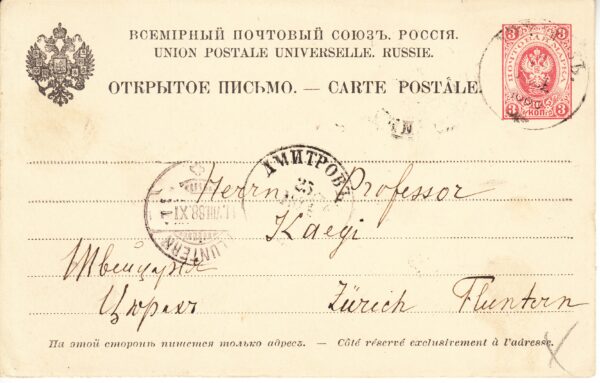 ВСЕМІРНЫЙ ПОЧТОВЫЙ СОЮЗЪ. РОССІЯ.
UNION POSTALE UNIVERSELLE. RUSSIE.
ОТКРЫТОЕ ПИСЬМО. — CARTE POSTALE.
ПОЧТОВАЯ МАРКА
3 3
3 КОП. 3
ДМИТРОВЪ
25
Herrn Professor
Kaegi
FLUNTERN
Швейцарія
Цюрихъ Zürich Fluntern
На этой сторонѣ пишется только адресъ. — Côté réservé exclusivement à l'adresse.